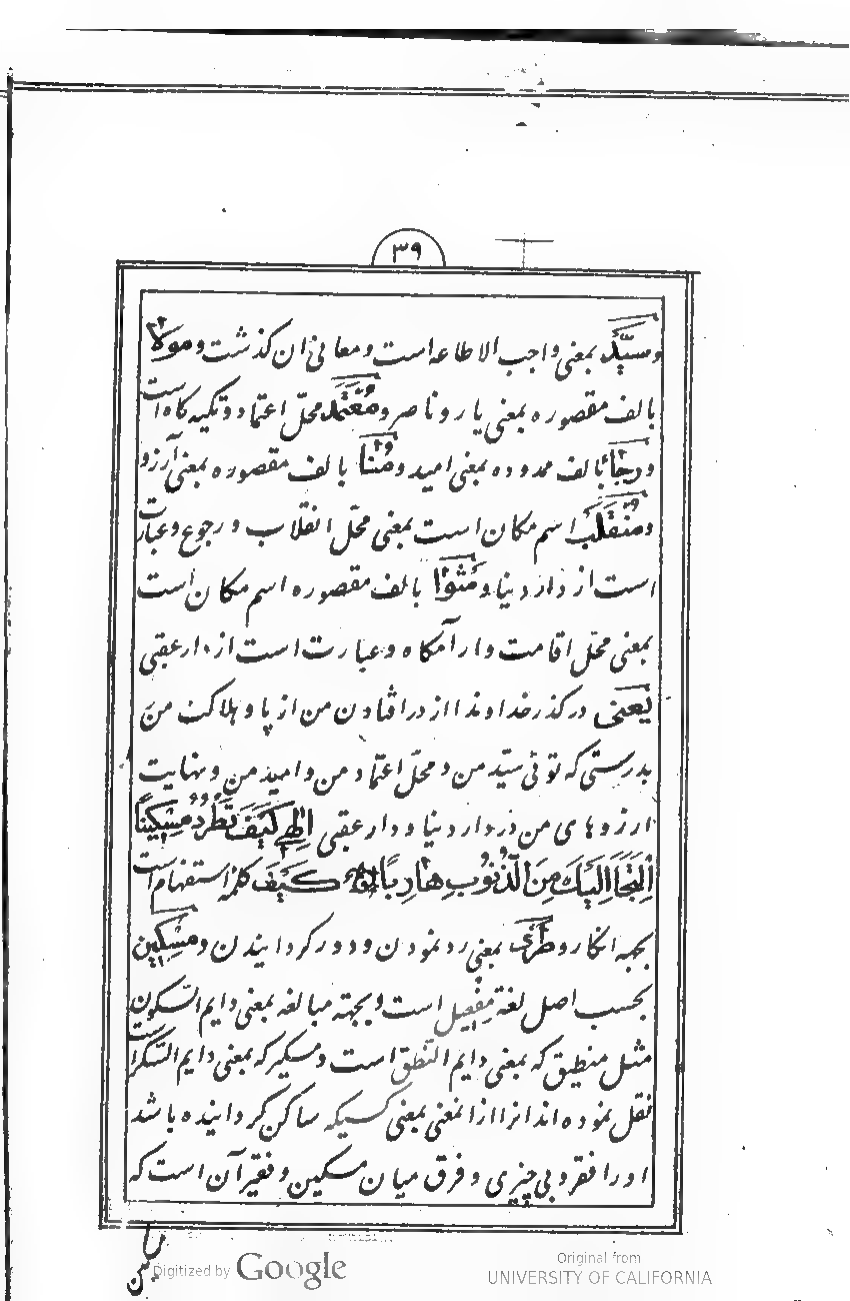 ۳۹
وسیّد بمعنی واجب الاطاعه است ومعانی ان کذشت ومولا
بالف مقصوره بمعنی یار وناصر ومعتمد محلّ اعتماد وتکیه کاه است
ورجا بالف ممدوده بمعنی امید ومُنا بالف مقصوره بمعنی آرزو
ومنقلب اسم مکان است بمعنی محلّ انقلاب ورجوع وعبارت
است از دار دنیا ومثوا بالف مقصوره اسم مکان است
بمعنی محلّ اقامت وارآمکاه وعبارت است از دار عقبی
یعنی درکذر خداوندا از درافتادن من از پا وهلاکت من
بدرستی که توئی سیّد من ومحلّ اعتماد من وامید من ونهایت
ارزوهای من در دار دنیا ودار عقبی الهی کیف تطرد مسکیناً
اِلتجأ الیک من الذنوب هارباً کیف کلمهٔ استفهام است
بجهه انکار وطرد بمعنی رد نمودن ودور کردانیدن ومسکین
بحسب اصل لغة مِفعیل است وبجهته مبالغه بمعنی دایم السکون
مثل منطیق که بمعنی دایم النطق است ومسکیر که بمعنی دایم السکر است
نقل نموده اند انرا از انمعنی بمعنی کسیکه ساکن کردانیده باشد
اورا فقر وبی چیزی وفرق میان مسکین وفقیر آن است که
Digitized by Google
Original from
UNIVERSITY OF CALIFORNIA